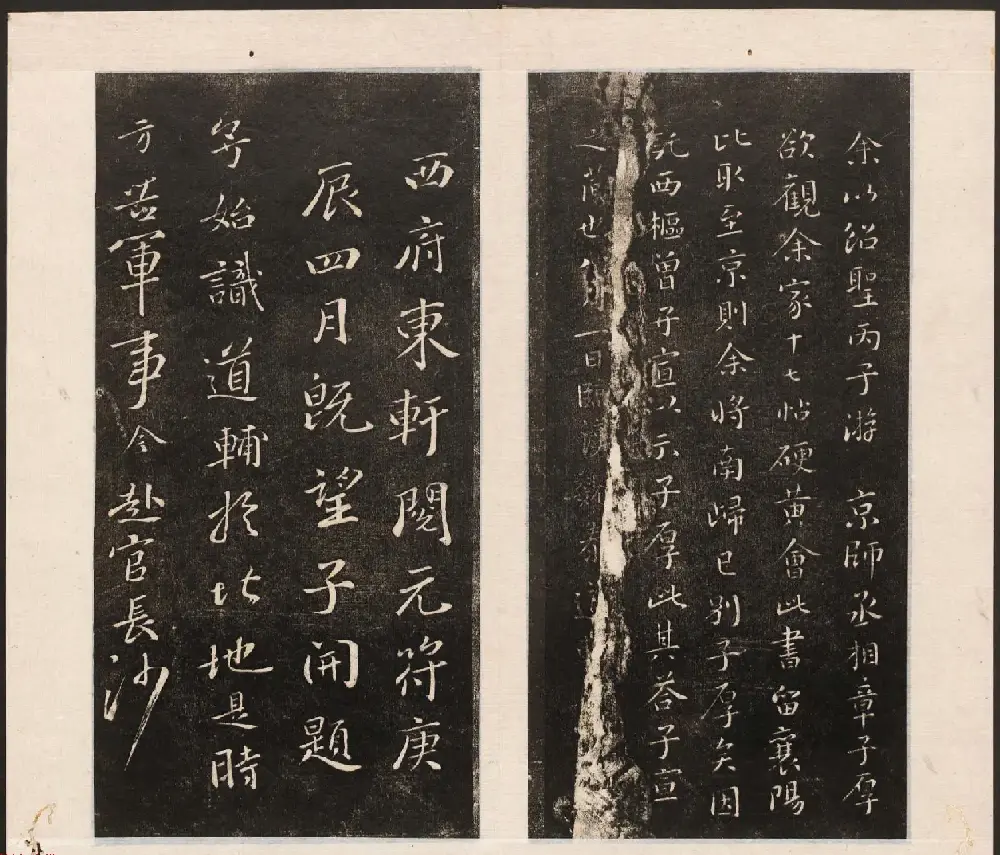 余以紹聖丙子游 京師丞相章子厚
欲觀余家十七帖硬黄會此書留襄陽
比取至京則余將南歸已別子厚矣因
託西樞曾子宣以示子厚此其荅子宣
之蘭也 一日
西府東軒閱元符庚
辰四月旣望子開題
始識道輔於此地是時
方 軍事今赴官長沙